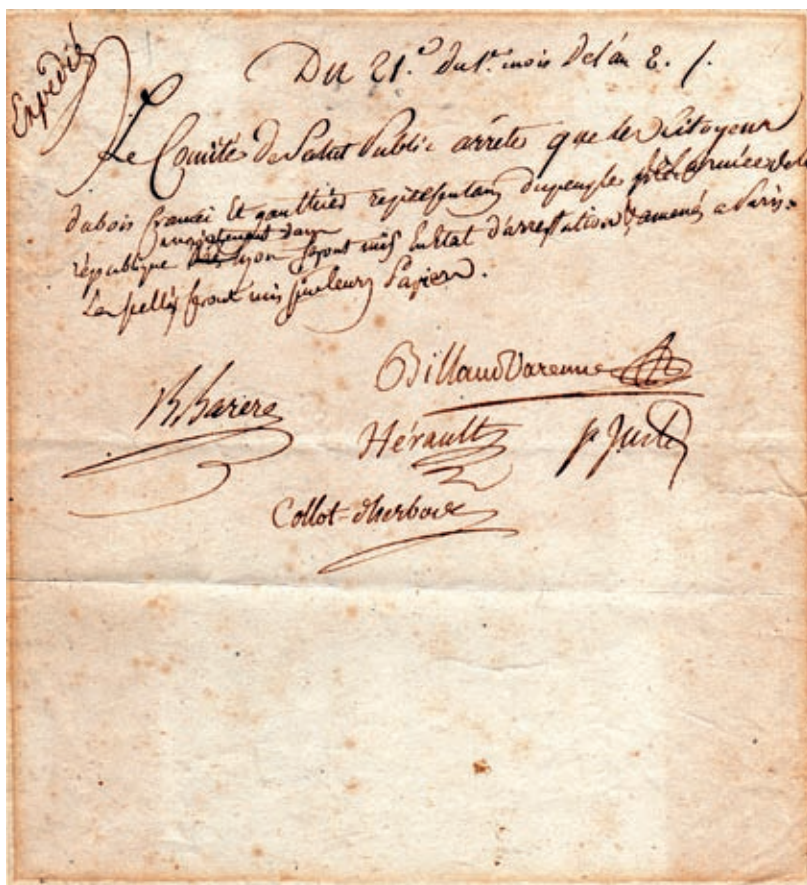 Expédié
Du 21.e du 1er mois de l'an 2. /.
Le Comité de Salut Public arrête que les Citoyens
dubois Crancé et gauthier représentans du peuple près l'armée de la
république lyon seront mis en état d'arrestation & amenés a Paris.
Les scellés seront mis sur leurs Papiers.
Billaud Varenne
B Barere
Hérault St Juste
Collot-d'herbois